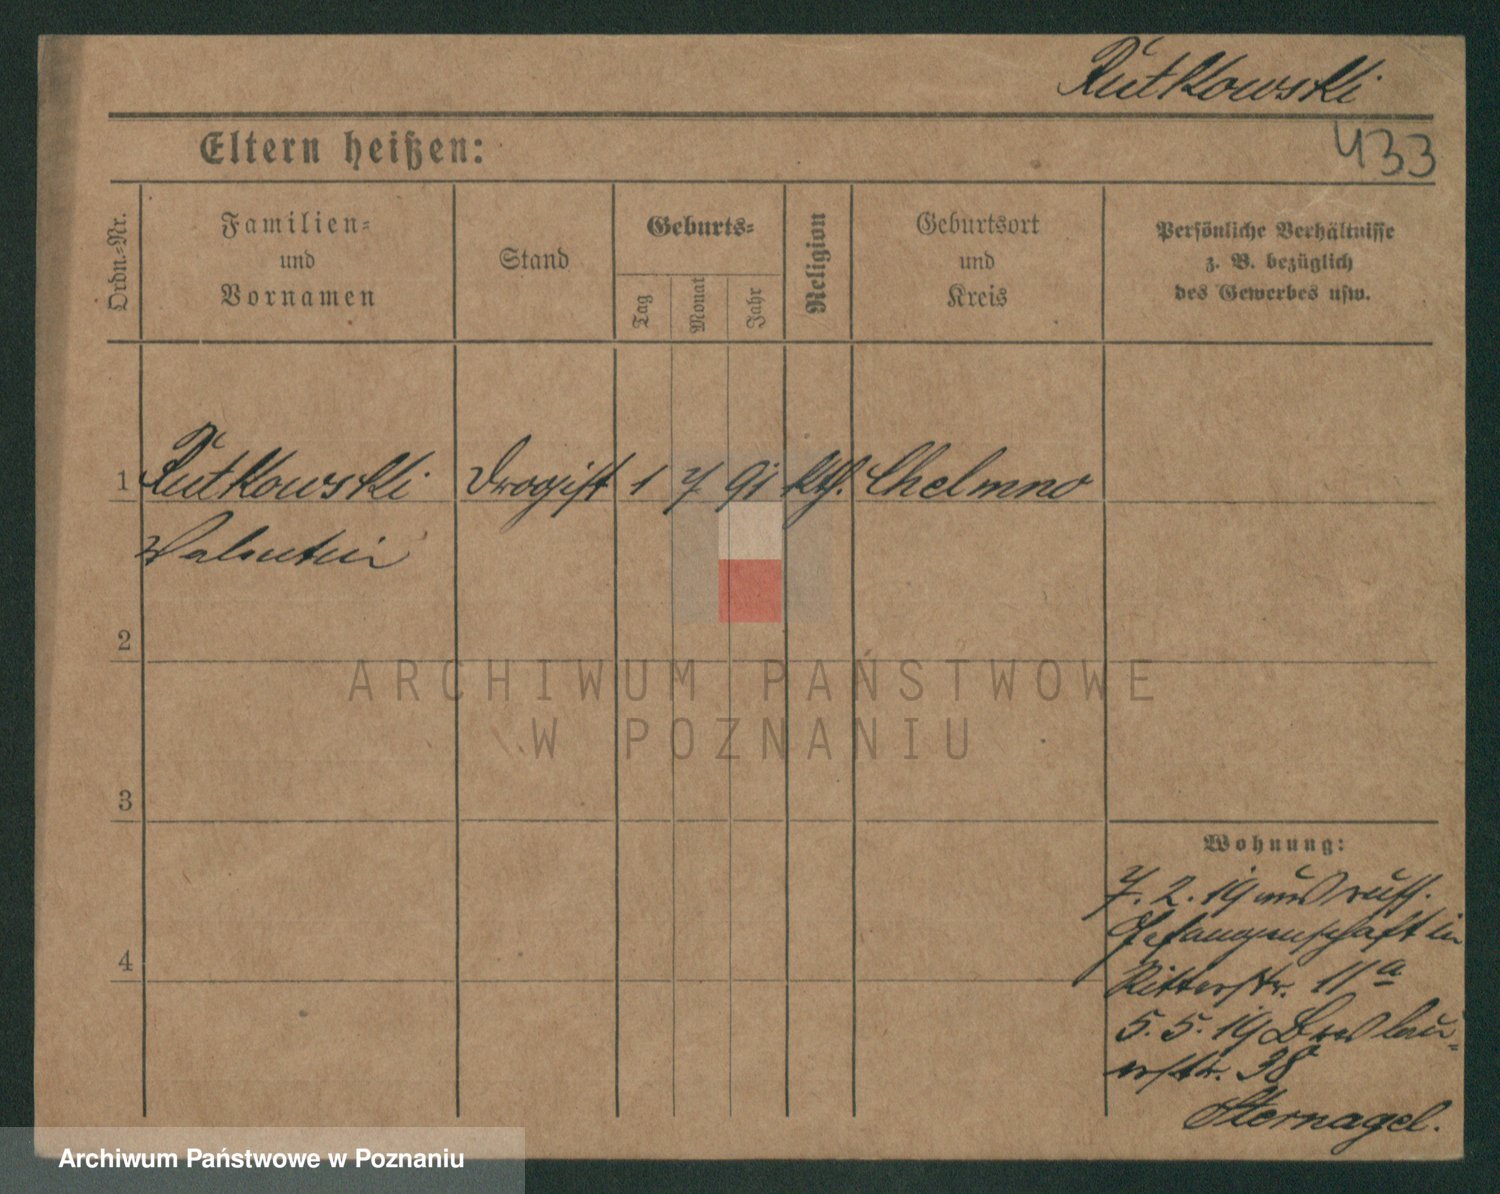 Rutkowski
433
Eltern heißen:
Ordn.-Nr.
Familien-
und
Vornamen
Stand
Geburts-
Tag
Monat
Jahr
Religion
Geburtsort
und
Kreis
Persönliche Verhältnisse
z. B. bezüglich
des Gewerbes usw.
1 Rutkowski Drogist 1 7 91 kth. Chelmno
Valentin
2
3
4
Wohnung:
7. 2. 19 aus russ.
Gefangenschaft in
Ritterstr. 11a
5. 5. 19 Breslau-
erstr. 38
Sternagel.
ARCHIWUM PAŃSTWOWE
W POZNANIU
Archiwum Państwowe w Poznaniu